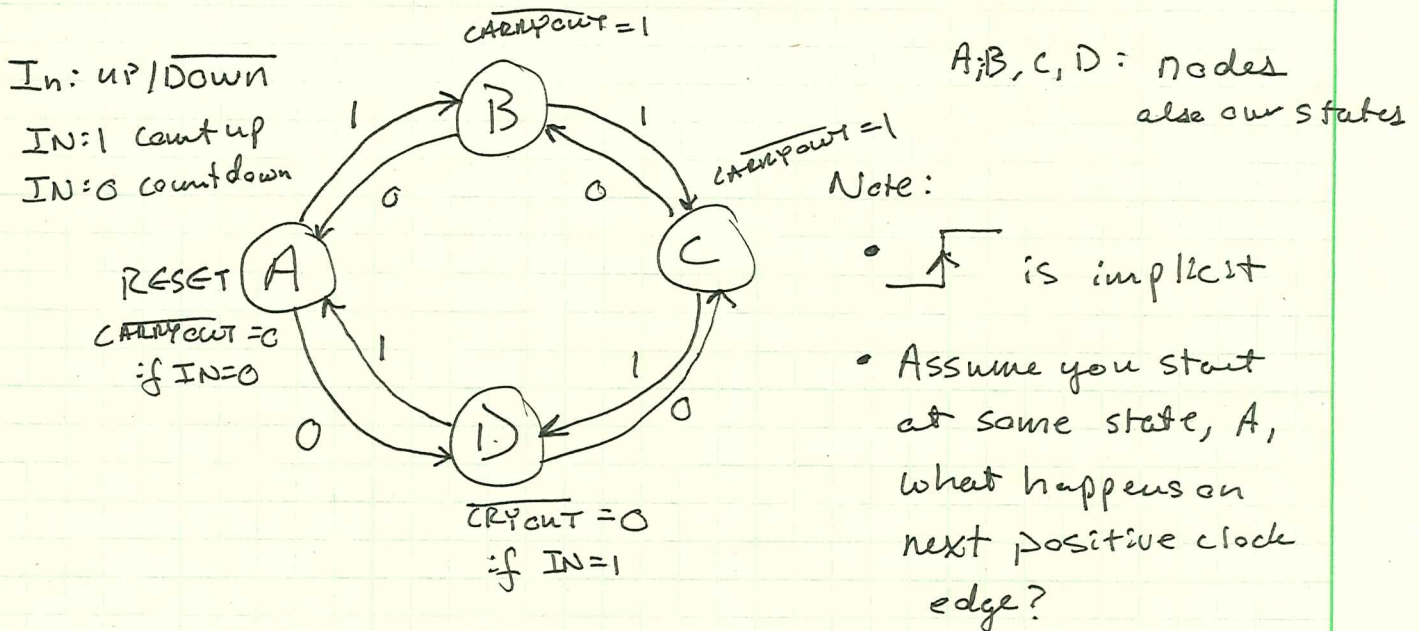 In: UP/Down
IN:1 count up
IN:0 countdown
CARRYOUT = 1
B
1
0
1
0
CARRYOUT = 1
C
RESET
A
CARRYOUT = 0
if IN=0
0
1
D
1
0
CRYOUT = 0
if IN=1
A,B, C, D : nodes
also our states
Note:
• is implicit
• Assume you start
at some state, A,
what happens on
next positive clock
edge?